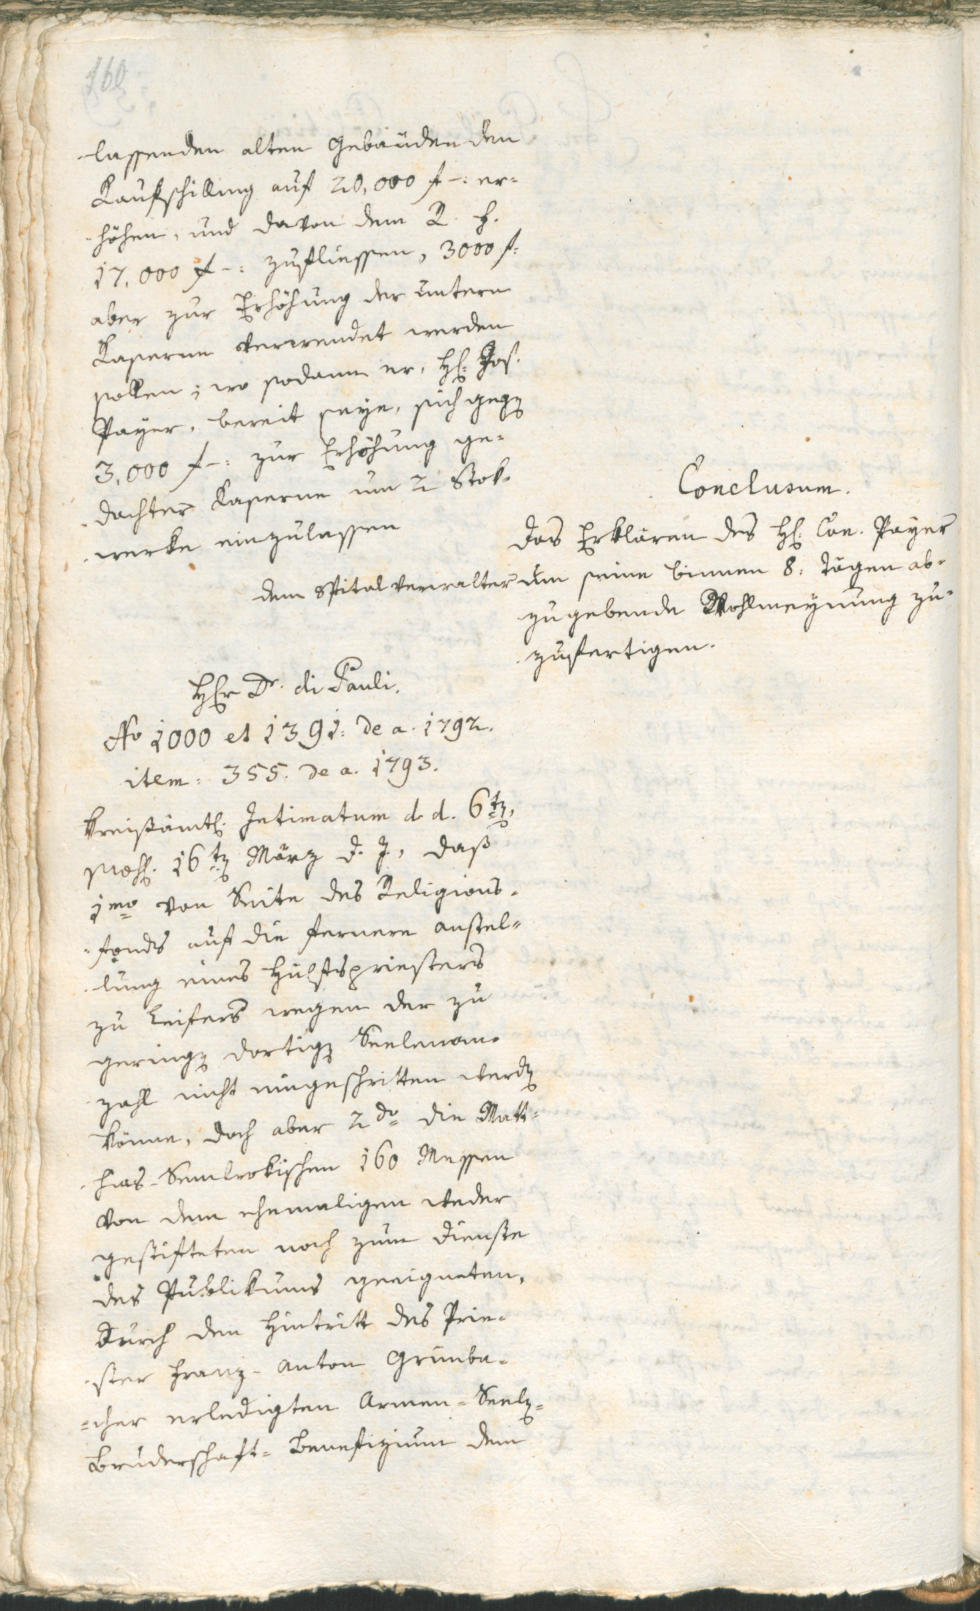 160
lassenden alten Gebäuden den
Kaufschilling auf 20,000 f –: er-
höhen, und davon dem R. f.
17,000 f –: zufliessen, 3000 f:
aber zur Erhöhung der untern
Kaserne verwendet werden
sollen; wo sodann er, H: Jos.
Payer, bereit seye, sich geg
3,000 f –: zur Erhöhung ge-
dachter Kaserne um 2 Stok-
werke einzulassen
Conclusum.
Das Erklären des H: Con. Payer
dem Spitalverwalter um seine binnen 8: Tägen ab-
zugebende Wohlmeynung zu-
zufertigen.
Hr Dr. di Pauli.
No 1000 et 1391: de a. 1792.
item: 355. de a. 1793.
Kreißämtl: Intimatum d. d. 6t,
16t März d. J, daß
1mo von Seite des Religions-
fonds auf die fernere anstel-
lung eines Hülfspriesters
zu Leifers wegen der zu
gering dortig Seelenan-
zahl nicht eingeschritten werd
könne, doch aber 2do die Matt-
hias-Semlrokischen 160 Messen
von dem ehemaligen weder
gestifteten noch zum Dienste
des Publikums geeigneten,
durch den Hintritt des Prie-
ster Franz-Anton Grünba-
cher erledigten Armen-Seel-
Bruderschaft-Benefizium dem